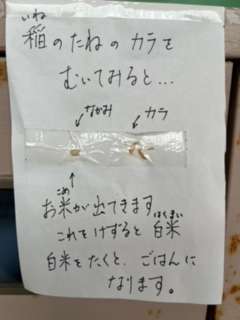 いね
稲のたねのカラを
むいてみると…
なかみ カラ
こめ
お米が出てきます
はくまい
これをけずると白米
白米をたくと、ごはんに
なります。